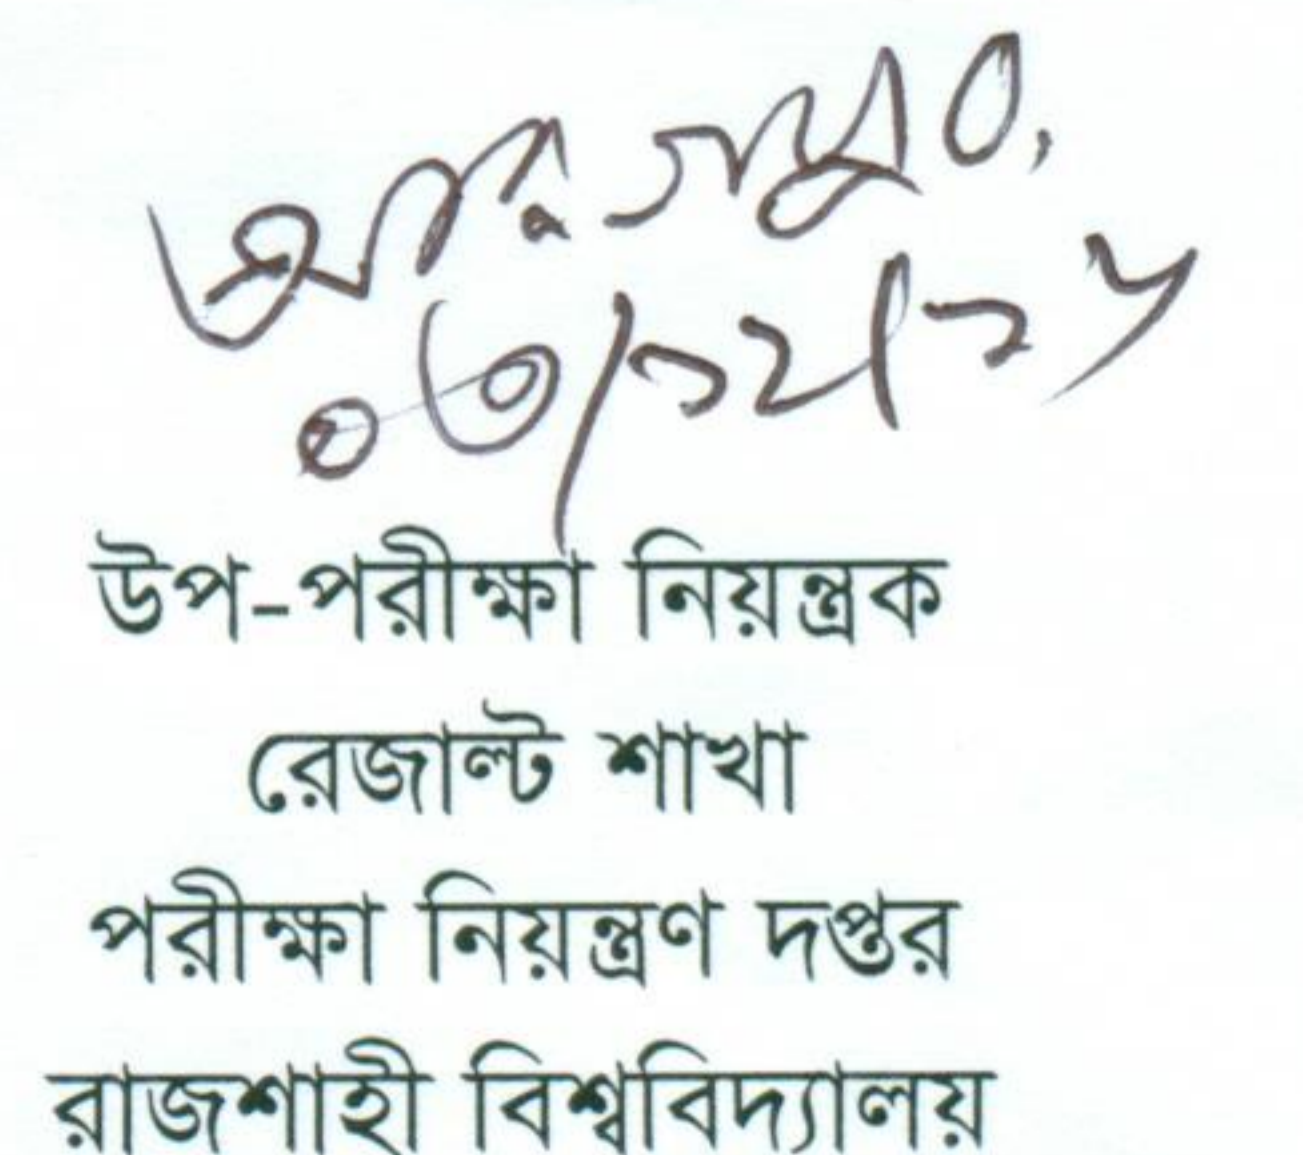 আবু
০৩/১২/১৮
উপ-পরীক্ষা নিয়ন্ত্রক
রেজাল্ট শাখা
পরীক্ষা নিয়ন্ত্রণ দপ্তর
রাজশাহী বিশ্ববিদ্যালয়